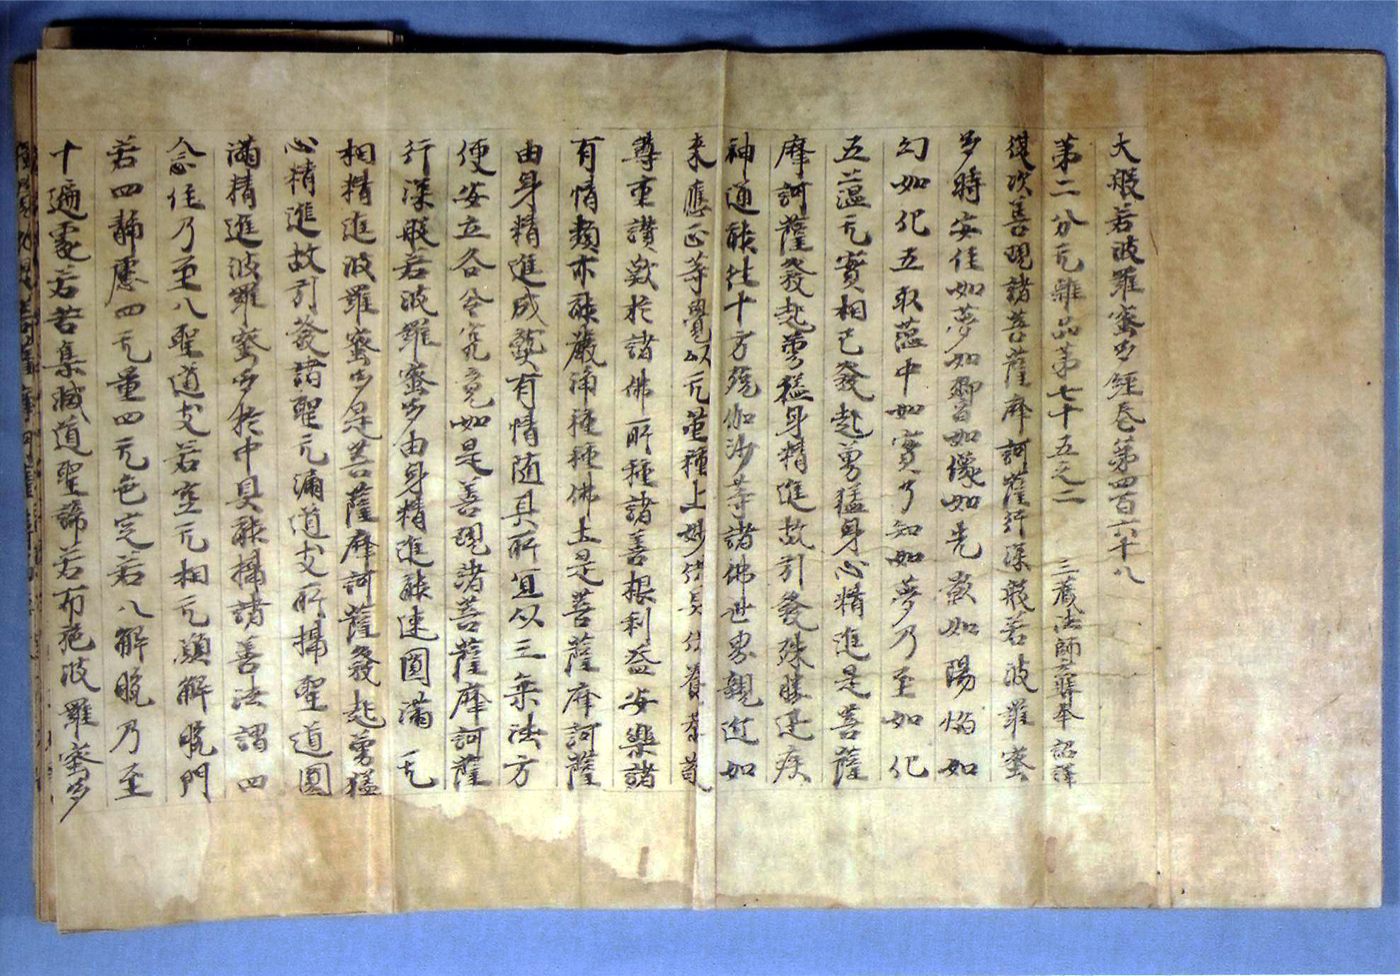 大般若波羅蜜多經卷第四百六十八
第二分无雜品第七十五之二 三藏法師玄奘奉 詔譯
復次善現諸菩薩摩訶薩行深般若波羅蜜
多時安住如夢如響如像如光影如陽焰如
幻如化五取蘊中如實了知如夢乃至如化
五蘊无實相已發起勇猛身心精進是菩薩
摩訶薩發起勇猛身精進故引發殊勝迅疾
神通能往十方殑伽沙等諸佛世界親近如
來應正等覺以无量種上妙供具供養恭敬
尊重讚歎於諸佛所種諸善根利益安樂諸
有情類亦能嚴淨種種佛土是菩薩摩訶薩
由身精進成熟有情随其所宜以三乘法方
便安立各令究竟如是善現諸菩薩摩訶薩
行深般若波羅蜜多由身精進能速圓滿无
相精進波羅蜜多是菩薩摩訶薩發起勇猛
心精進故引發諸聖无漏道支所攝聖道圓
滿精進波羅蜜多於中具能攝諸善法謂四
念住乃至八聖道支若空无相无願解脫門
若四靜慮四无量四无色定若八解脫乃至
十遍處若苦集滅道聖諦若布施波羅蜜多